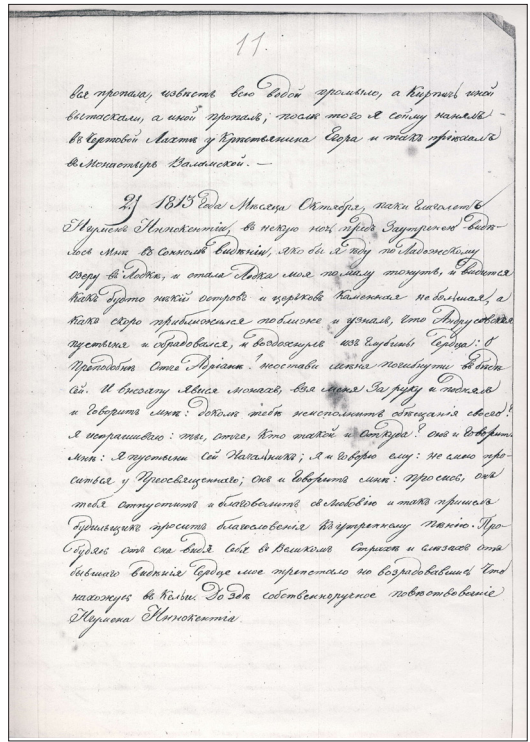 11.
вся пропала, известь всю водой промыло, а Кирпичь иной
вытаскали, а иной пропалъ; послѣ того я сойму нанялъ
въ Кортовой Лахтѣ у Крестьянина Егора и такъ приѣхалъ
въ Монастырь Валамской. —
2.) 1813 года Мѣсяца Октября, паки глаголетъ
Игуменъ Иннокентій, въ некую ночь предъ Заутреней видѣ-
лось мнѣ въ сонномъ видѣніи, яко бы я иду по Ладожскому
озеру въ Лодкѣ, и стала Лодка моя помалу тонуть, и видится
какъ будто нѣкій островъ и церковь каменная небольшая, а
како скоро приближился поближе и узналъ, что Андрусовская
пустыня и обрадовался, и воздохнувъ изъ глубины Сердца: О
Преподобне Отче Адріане! неостави мене погибнути въ бѣдѣ
сей. И внезапу явися монахъ, взя меня за руку и поднялъ
и говоритъ мнѣ: доколѣ тебѣ неисполнить обѣщанія своего?
я испрашиваю: ты, отче, кто такой и откуда? онъ и говоритъ
мнѣ: Я пустыни сей Начальникъ; я и говорю ему: не смѣю про-
ситься у Преосвященнаго; онъ и говоритъ мнѣ: просись, онъ
тебя отпуститъ и благоволитъ съ Любовію и такъ пришелъ
будильщикъ просить благословенія къ утренному пѣнію. Про-
будясь отъ сна видя Себя въ Великомъ Страхѣ и слезахъ отъ
бывшаго видѣнія Сердце мое трепетало но возрадовавшись что
нахожусь въ Кельи. До здѣ собственноручное повѣствованіе
Игумена Иннокентія.